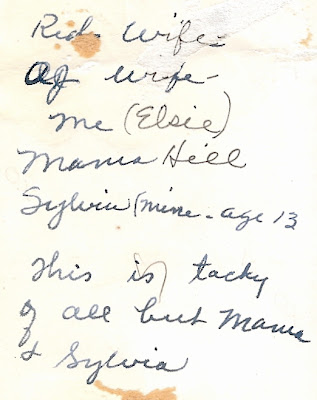 Red's Wife-
OJ wife-
Me (Elsie)
Mama Hill
Sylvia (mine - age 13
This is tacky
of all but Mama
& Sylvia